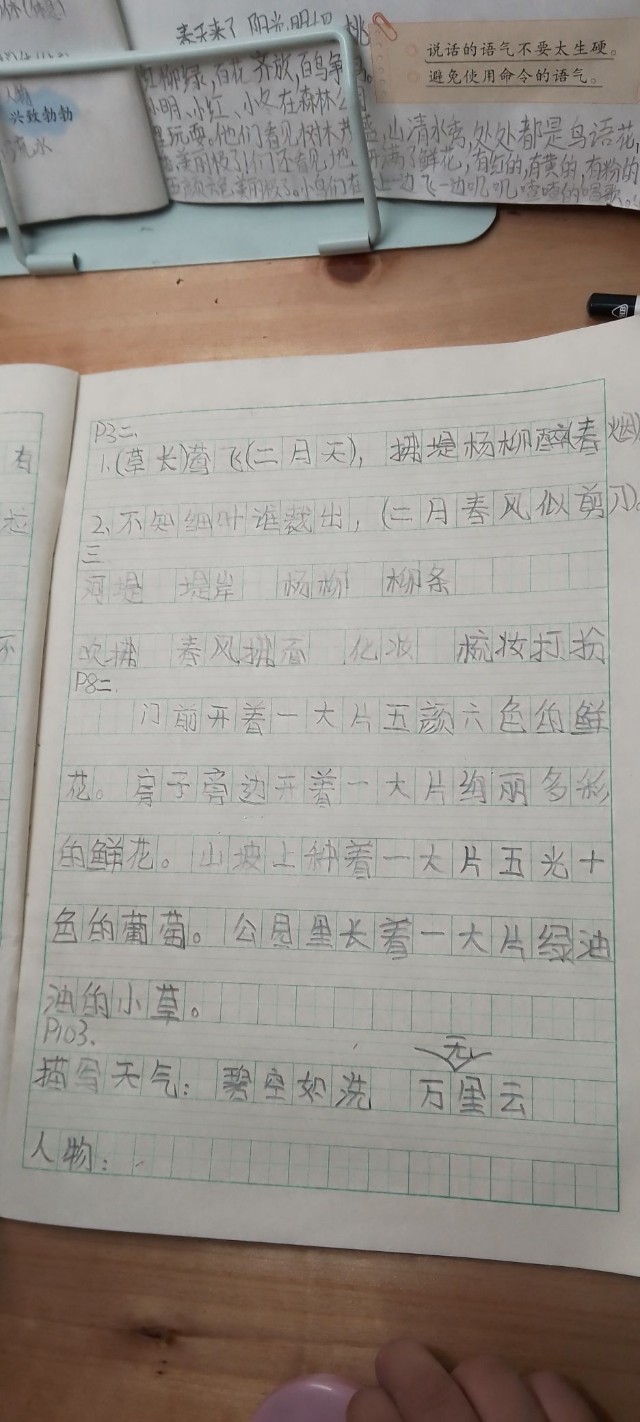 春天来了，阳光明切，桃
红柳绿，百花齐放，百鸟争
小明、小红、小冬在森林公
里玩耍。他们看见树木
，山清水秀，处处都是鸟语花，
美丽极了！们还看见，地
开满了鲜花，有红的，有黄的，有粉的
五颜六色美丽极了。小鸟们在
上一边飞一边叽叽喳喳的唱歌。
人物
兴致勃勃
流水
说话的语气不要太生硬。
避免使用命令的语气。
P3二、
1、(草长)莺飞(二月天)，拂堤杨柳醉(春烟)
2、不知细叶谁裁出，(二月春风似剪刀)。
三
河堤 堤岸 杨柳 柳条
吹拂 春风拂面 化妆 梳妆打扮
P8二、
门前开着一大片五颜六色的鲜
花。房子旁边开着一大片绚丽多彩
的鲜花。山坡上种着一大片五光十
色的葡萄。公园里长着一大片绿油
油的小草。
P103.
描写天气：碧空如洗 万里无云
人物：